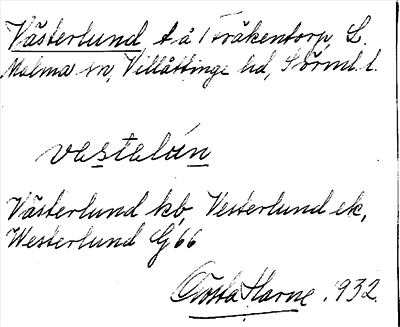 Västerlund, t å Fråkentorp, L.
Malma sn, Villåttinge hd, Sörml. l.
vastalún
Västerlund kb, Vesterlund ek,
Westerlund G 66
Gösta Harne. 1932.